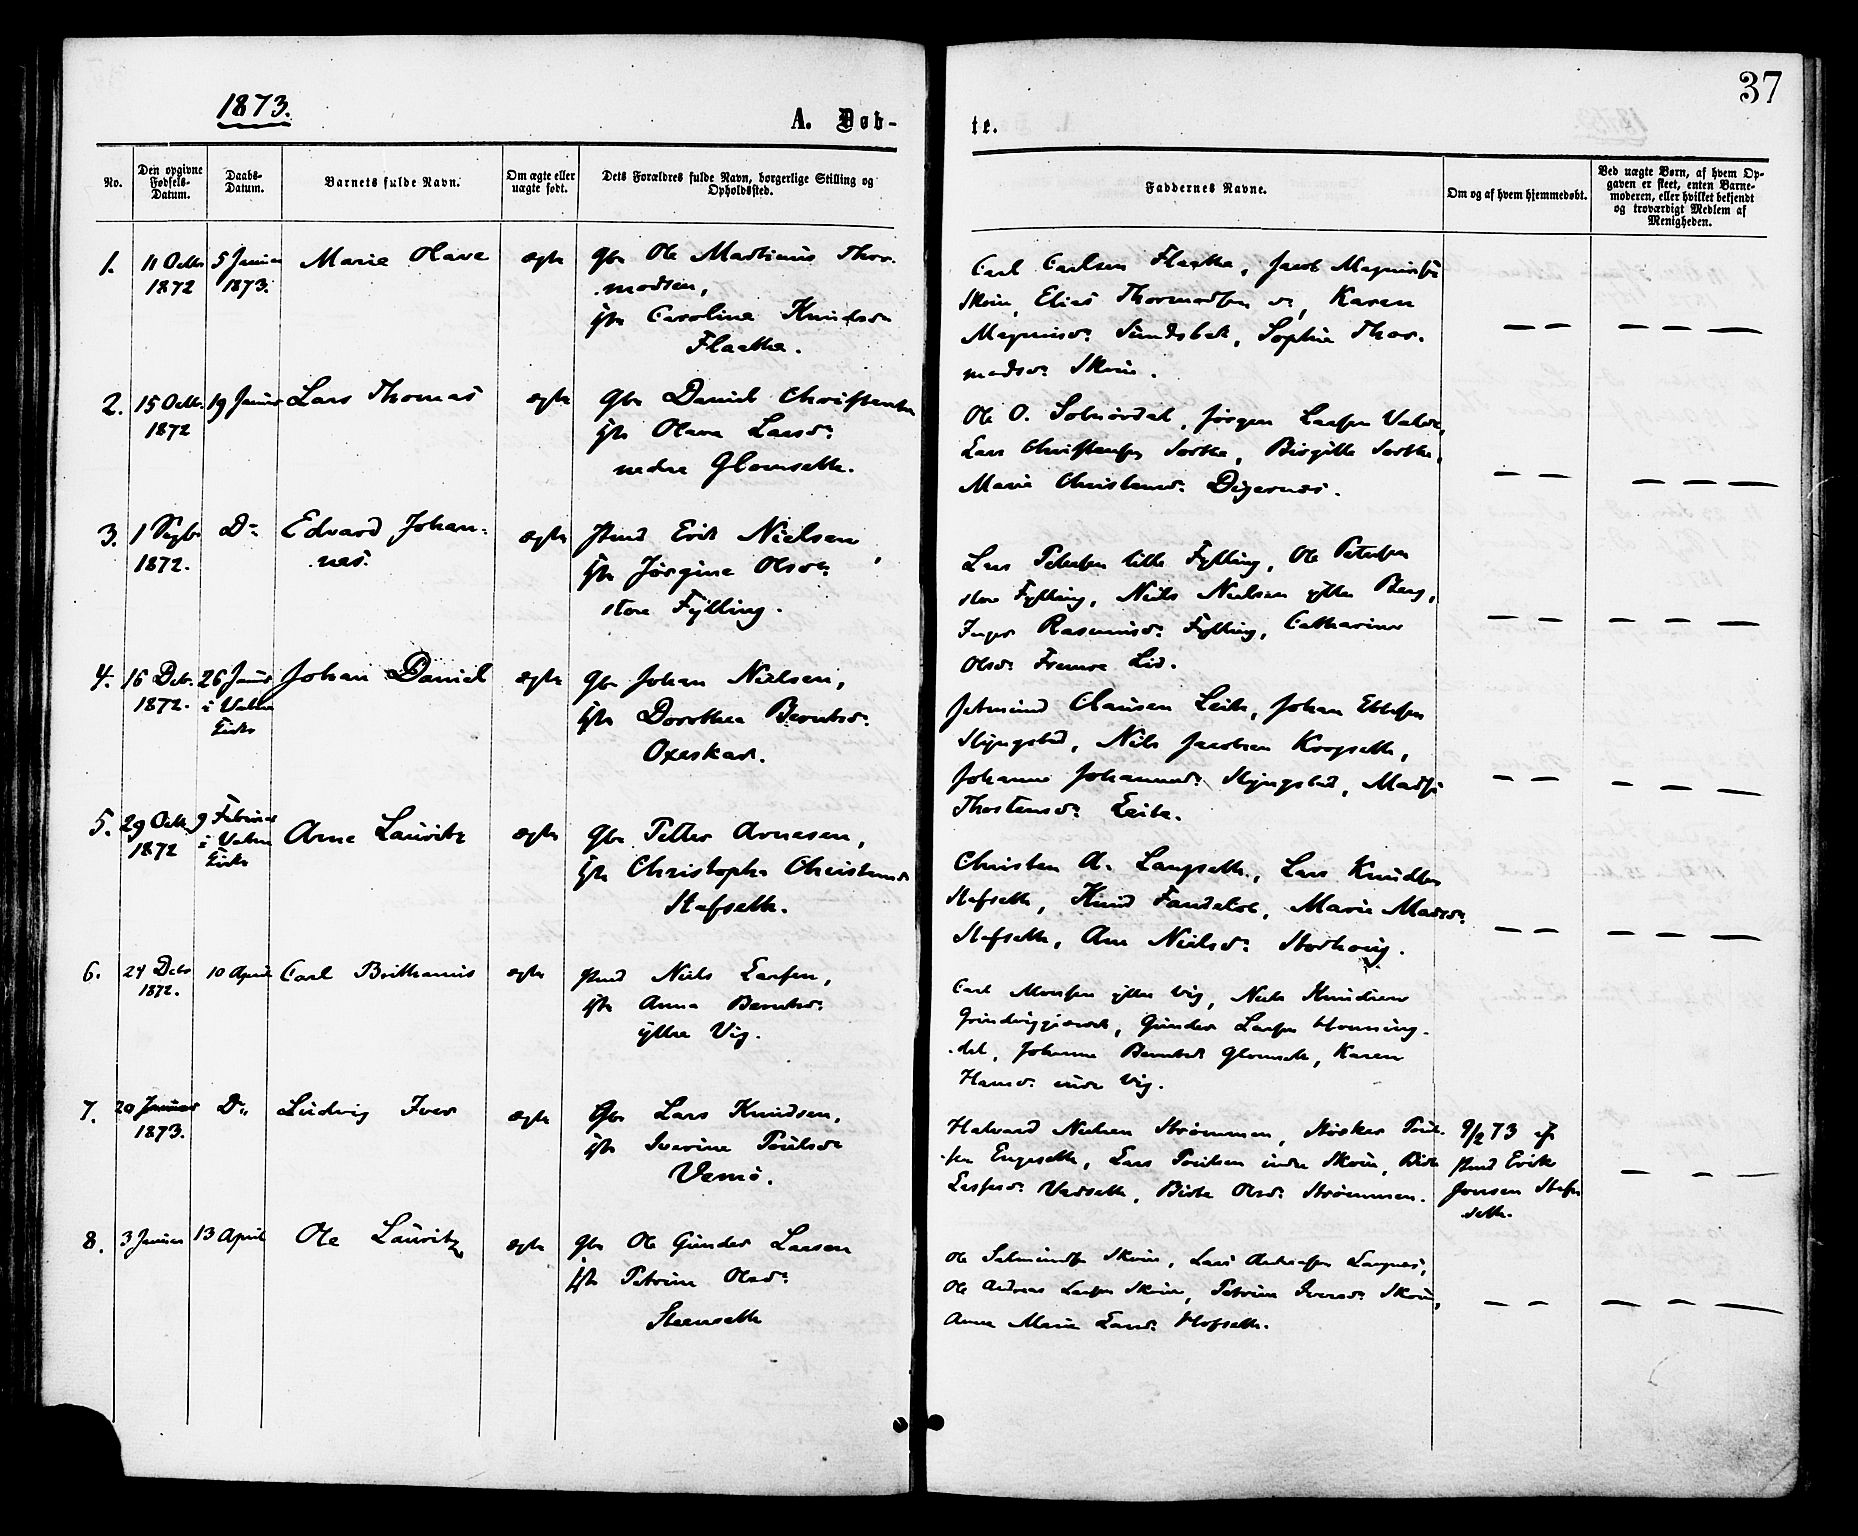 1873.
A. Døb-
te.
37
No.
Den opgivne Fødsels-Datum.
Daabs-Datum.
Barnets fulde Navn.
Om ægte eller uægte født.
Dets Forældres fulde Navn, borgerlige Stilling og Opholdssted.
Faddernes Navne.
Om og af hvem hjemmedøbt.
Ved uægte Børn, af hvem Opgaven er skeet, enten Barnemoderen, eller hvilket bekjendt og troværdigt Medlem af Menigheden.
1.
11 Octbr
1872
5 Januar
1873.
Marie Olave
ægte
Gbr Ole Martinus Thor-
modsen,
Caroline Knudsdr
Flaathe.
Carl Carlsen Flaathe, Jacob Magnus
Skoui, Elias Thormodsen do, Karen
Magnusdr Sundsbak, Sophie Thor-
modsdr Skoui.
— — — — —
2.
15 Octbr.
1872
19 Januar
Lars Thomas
ægte
Gbr Daniel Christensen
Olave Larsdr
nedre Glomseth.
Ole O. Solnørdal, Jørgen Larsen
Lars Christensen, Birgitte
Marie Christensdr Digernæs.
— — — — —
3.
1 Septbr
1872.
Do
Edvard Johan-
nes.
ægte
Erik Nielsen,
Jørgine Olsdr
store Fylling.
Lars Petersen lille Fylling, Ole Petersen
store Fylling, Niels Nielsen ytter Berg,
Inger Rasmusdr Fylling, Catharine
Olsdr Fremre Lid.
— — — — —
4.
16 Dcbr.
1872.
26 Januar
i Vatne
Kirke
Johan Daniel
ægte
Gbr Johan Nielsen,
Dorothea Berntsdr
Oxeskar.
Jetmund Clausen Leite, Johan Ebbesen
Slyngstad, Niels Jacobsen Krogseth,
Johanne Johannesdr Slyngstad,
Thostensdr Leite.
— — — — —
5.
29 Octbr
1872
9 Februar
i Vatne
Kirke
Arne Lauritz
ægte
Gbr Petter Arnesen,
Christophe Christensdr
Stafseth.
Christen A. Langseth, Lars Knudsen
Stafseth, Knud, Marie Madsdr
Stafseth, Ane Nielsdr.
— — — — —
6.
24 Dcbr
1872.
10 April
Carl Brithanius
ægte
Niels Larsen,
Anna Berntsdr
ytre Vig.
Carl ytre Vig, Niels Knudsen
Gunder Larsen Honning-
dal, Johanne Berntsdr Glomseth, Karen
Hansdr indre Vig.
7.
20 Januar
1873.
Do
Ludvig Iver
ægte
Gbr Lars Knudsen,
Iverine Poulsdr
Vemø.
Halvard Nielsen Strømmen, Poul-
sen Engeseth, Lars Poulsen indre Skoui,
Vadseth, Olsdr Strømmen.
9/2 73 af
Erik
Jonsen Staf-
seth.
— — —
8.
3 Januar
13 April
Ole Lauritz
ægte
Gbr Ole Gunder Larsen
Petrine Olsdr
Steenseth
Ole Salmundsen Skoui, Lars Andreasen Langnes,
Ole Andreas Larsen Skoui, Petrine Iversdr Skoui,
Anne Marie Larsdr Hofseth.
— — — — —